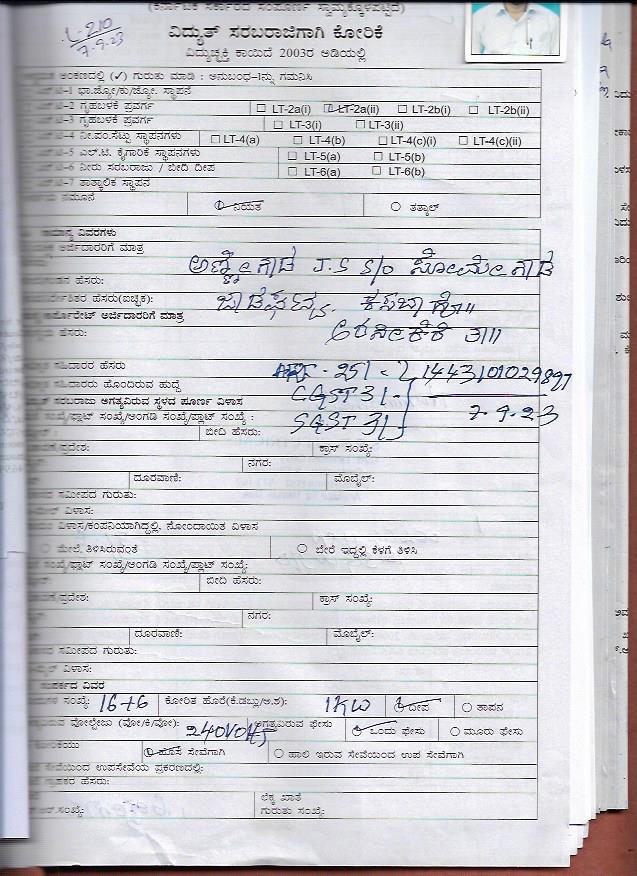 (ಕರ್ನಾಟಕ ಸರ್ಕಾರದ ಸಂಪೂರ್ಣ ಸ್ವಾಮ್ಯಕ್ಕೊಳಪಟ್ಟಿದೆ)
L-210
7-9-23
ವಿದ್ಯುತ್ ಸರಬರಾಜಿಗಾಗಿ ಕೋರಿಕೆ
ವಿದ್ಯುಚ್ಛಕ್ತಿ ಕಾಯಿದೆ 2003ರ ಅಡಿಯಲ್ಲಿ
ಅಂಕಣದಲ್ಲಿ (✓) ಗುರುತು ಮಾಡಿ : ಅನುಬಂಧ-1ನ್ನು ಗಮನಿಸಿ
-1 ಭಾ.ಜ್ಯೋ/ಕು/ಜ್ಯೋ. ಸ್ಥಾಪನೆ
-2 ಗೃಹಬಳಕೆ ಪ್ರವರ್ಗ LT-2a(i) LT-2a(ii) LT-2b(i) LT-2b(ii)
-3 ಗೃಹಬಳಕೆ ಪ್ರವರ್ಗ LT-3(i) LT-3(ii)
-4 ನೀ.ಪಂ.ಸೆಟ್ಟು ಸ್ಥಾಪನಗಳು LT-4(a) LT-4(b) LT-4(c)(i) LT-4(c)(ii)
-5 ಎಲ್.ಟಿ. ಕೈಗಾರಿಕೆ ಸ್ಥಾಪನಗಳು LT-5(a) LT-5(b)
-6 ನೀರು ಸರಬರಾಜು / ಬೀದಿ ದೀಪ LT-6(a) LT-6(b)
-7 ತಾತ್ಕಾಲಿಕ ಸ್ಥಾಪನ
ನಮೂನೆ ನಿಯತ ತತ್ಕಾಲ್
ವಿವರಗಳು
ಅರ್ಜಿದಾರರಿಗೆ ಮಾತ್ರ
ಅಣ್ಣೇಗೌಡ J.S S/o ಸೋಮೇಗೌಡ
ಹೆಸರು:
ಹೆಸರು(ಐಚ್ಛಿಕ): ಕಸಬಾ ಹೋ॥
ಅರ್ಜಿದಾರರಿಗೆ ಮಾತ್ರ
ಅರಸೀಕೆರೆ ತಾ॥
ಹೆಸರು:
ಸಹಿದಾರರ ಹೆಸರು 25/- 1443101029897
ಸಹಿದಾರರು ಹೊಂದಿರುವ ಹುದ್ದೆ CGST 3/-
ಸರಬರಾಜು ಅಗತ್ಯವಿರುವ ಸ್ಥಳದ ಪೂರ್ಣ ವಿಳಾಸ 7-9-23
ಸಂಖ್ಯೆ/ಫ್ಲಾಟ್ ಸಂಖ್ಯೆ/ಅಂಗಡಿ ಸಂಖ್ಯೆ/ಪ್ಲಾಟ್ ಸಂಖ್ಯೆ : SGST 3/-
ಬೀದಿ ಹೆಸರು:
ಪ್ರದೇಶ: ಕ್ರಾಸ್ ಸಂಖ್ಯೆ:
ನಗರ:
ದೂರವಾಣಿ: ಮೊಬೈಲ್:
ಸಮೀಪದ ಗುರುತು:
ವಿಳಾಸ:
ವಿಳಾಸ/ಕಂಪನಿಯಾಗಿದ್ದಲ್ಲಿ, ನೋಂದಾಯಿತ ವಿಳಾಸ
ಮೇಲೆ ತಿಳಿಸಿರುವಂತೆ ಬೇರೆ ಇದ್ದಲ್ಲಿ ಕೆಳಗೆ ತಿಳಿಸಿ
ಸಂಖ್ಯೆ/ಫ್ಲಾಟ್ ಸಂಖ್ಯೆ/ಅಂಗಡಿ ಸಂಖ್ಯೆ/ಪ್ಲಾಟ್ ಸಂಖ್ಯೆ:
ಬೀದಿ ಹೆಸರು:
ಪ್ರದೇಶ: ಕ್ರಾಸ್ ಸಂಖ್ಯೆ:
ನಗರ:
ದೂರವಾಣಿ: ಮೊಬೈಲ್:
ಸಮೀಪದ ಗುರುತು:
ವಿಳಾಸ:
ಸಂಪರ್ಕದ ವಿವರ
ಸಂಖ್ಯೆ: 16+6 ಕೋರಿತ ಹೊರೆ(ಕೆ.ಡಬ್ಲು/ಅ.ಶ): 1KW ದೀಪ ತಾಪನ
ವೋಲ್ಟೇಜು (ವೋ/ಕಿ/ವೋ): 240Volts ಅಗತ್ಯವಿರುವ ಫೇಸು ಒಂದು ಫೇಸು ಮೂರು ಫೇಸು
ಹೊಸ ಸೇವೆಗಾಗಿ ಹಾಲಿ ಇರುವ ಸೇವೆಯಿಂದ ಉಪ ಸೇವೆಗಾಗಿ
ಸೇವೆಯಿಂದ ಉಪಸೇವೆಯ ಪ್ರಕರಣದಲ್ಲಿ:
ಗ್ರಾಹಕರ ಹೆಸರು:
ಆರ್.ಸಂಖ್ಯೆ: ಲೆಕ್ಕ ಖಾತೆ
ಗುರುತು ಸಂಖ್ಯೆ: